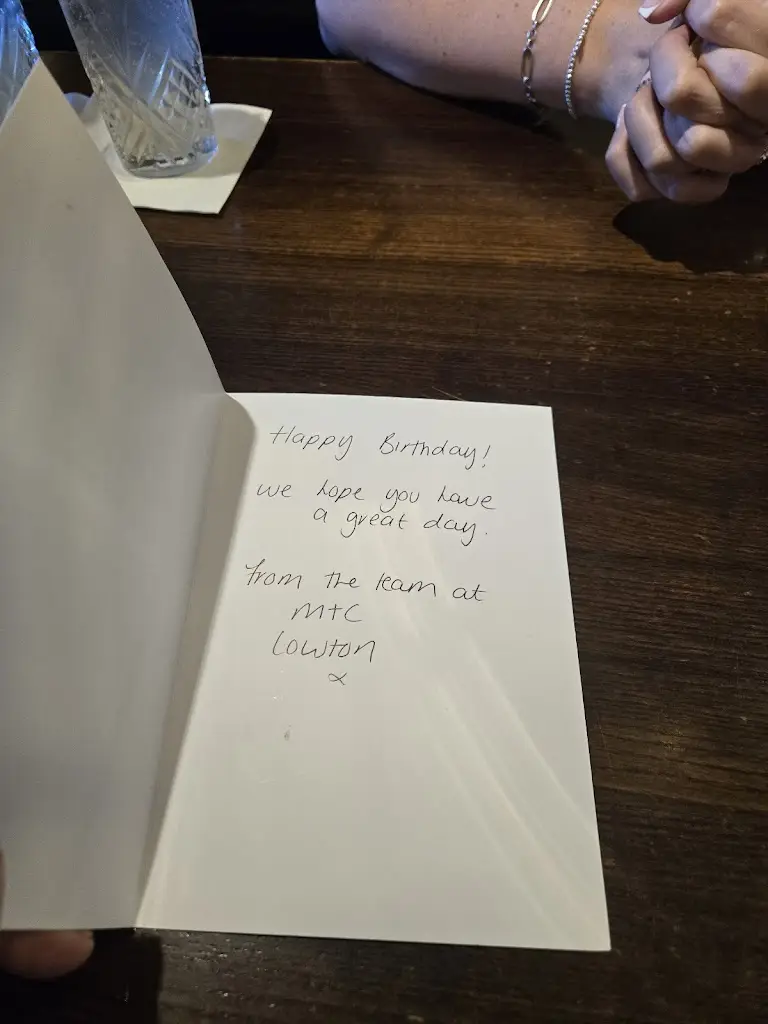 Happy Birthday!
we hope you have
a great day.
from the team at
M+C
Lowton
x